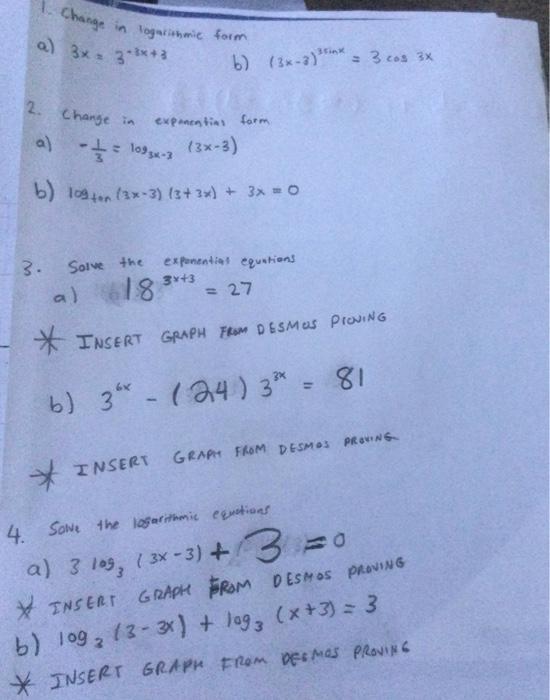 1. Change in logarithmic form
a) 3x = 3^-3x+3 b) (3x-3)^3sinx = 3 cos 3x
2. Change in exponential form
a) -1/3 = log_3x-3 (3x-3)
b) log_tan (3x-3) (3+3x) + 3x = 0
3. Solve the exponential equations
a) 18^3x+3 = 27
* INSERT GRAPH FROM DESMOS PROVING
b) 3^6x - (24) 3^3x = 81
* INSERT GRAPH FROM DESMOS PROVING
4. Solve the logarithmic equations
a) 3 log_3 (3x-3) + 3 = 0
* INSERT GRAPH FROM DESMOS PROVING
b) log_3 (3-3x) + log_3 (x+3) = 3
* INSERT GRAPH FROM DESMOS PROVING